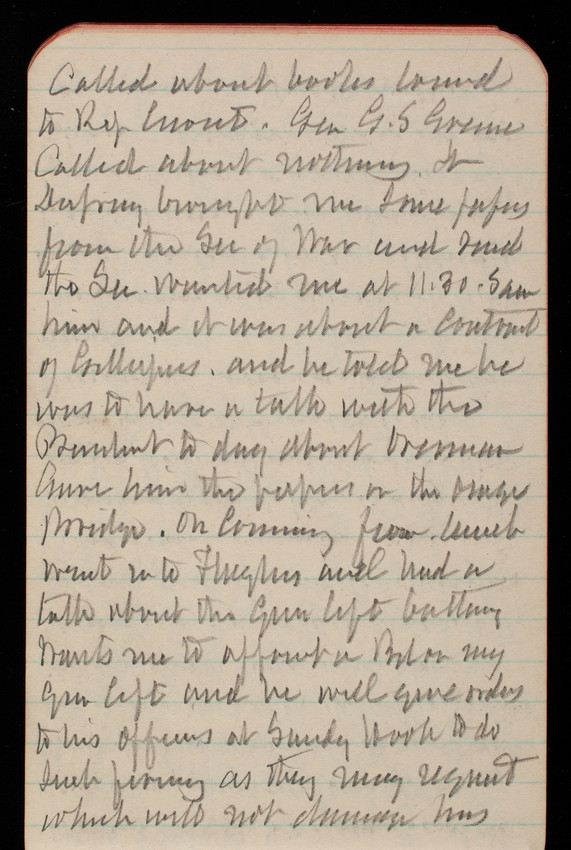 Called about books loaned
to Rep Enost. Gen G.S Greene
Called about nothing. Lt
brought me some papers
from the Sec of War and said
the Sec. wanted me at 11.30. Saw
him and it was about a Contract
of Gillespies. and he told me he
was to have a talk with the
President to day about
Gave him the papers on the Osage
Bridge. On Coming from lunch
went in to Flaglers and had a
talk about the Gun lift battery
Wants me to appoint a Bd on my
Gun lift and he will give orders
to his officers at Sandy Hook to do
such firing as they may request
which will not damage his